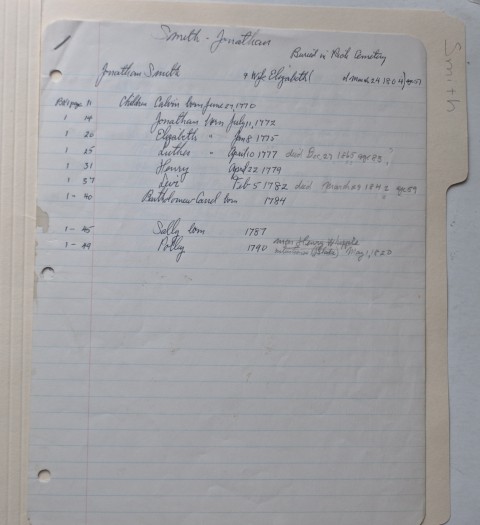 Smith - Jonathan
Smith
Buried in Cemetery
Jonathan Smith & Wife Elizabeth ( d March 24 1804) age 57
page 11 Children Calvin born June 27, 1770
1 14 Jonathan born July 11, 1772
1 20 Elizabeth " Jan 8 1775
1 25 Luther " April 10 1777 died Dec 29 1865 age 83
1 31 Henry April 22 1779
1 37 Levi Feb 5 1782 died March 1842 age 59
1 - 40 Bartholomew born 1784
1 - 45 Sally born 1787
1 - 49 Polly 1790 Henry Whipple
May 1, 1820